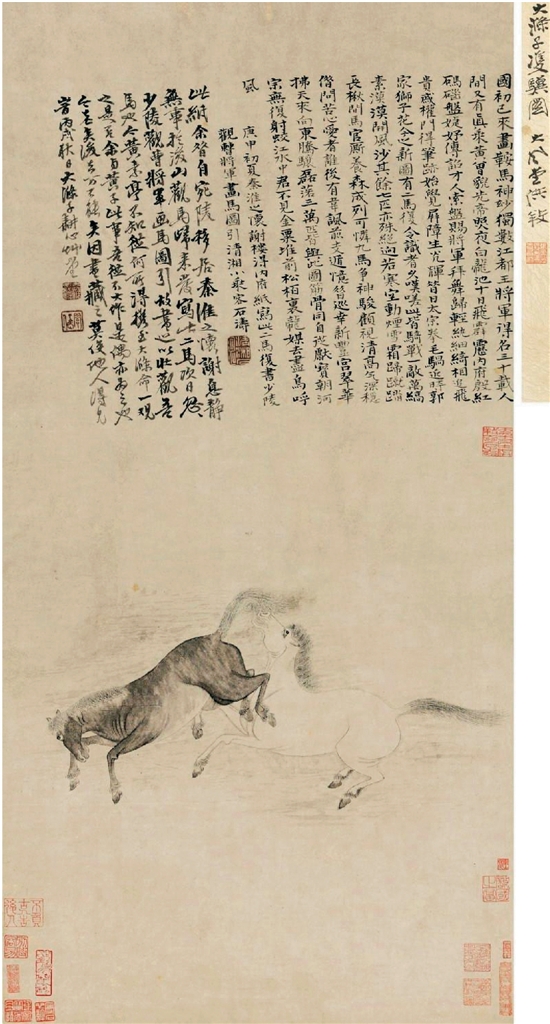 大滌子雙驥圖 大風堂
國初已來畫鞍馬神妙獨數江都王將軍得名三十載人
間又有真乘黃曾貌先帝照夜白龍池十日飛霹靂內府殷紅
碼碯盤婕妤傳詔才人索盤賜將軍拜舞歸輕紈細綺相追飛
貴戚權門得筆跡始覺屏障生光輝昔日太宗拳毛騧近時郭
家獅子花今之新圖有二馬復令識者久嘆嗟此皆騎戰一敵萬縞
素漠漠開風沙其餘七匹亦殊絕迥若寒空動煙雪霜蹄蹴踏
長楸間馬官廝養森成列可憐九馬爭神駿顧視清高氣深穩
借問苦心愛者誰後有韋諷前支遁憶昔巡幸新豐宮翠華
拂天來向東騰驤磊落三萬匹皆與此圖筋骨同自從獻寶朝河
宗無復射蛟江水中君不見金粟堆前松柏裏龍媒去盡鳥呼
風 庚申初夏秦淮之懷謝樓得內府紙寫此二馬復書少陵
觀曹將軍畫馬圖引清湘小乘客石濤
此紙余昔自宛陵移居秦淮之懷謝息靜
無事於後山觀馬歸來發寫此二馬次日忽
少陵觀曹將軍畫馬圖引故書過以壯觀吾
馬也今黃素亭不知從何所得攜至大滌命一觀
之余與黃子此事從不大作是偶亦為之也
今老矣後不能矣因書藏之莫使他人得見
丙戌秋日大滌子耕心草堂